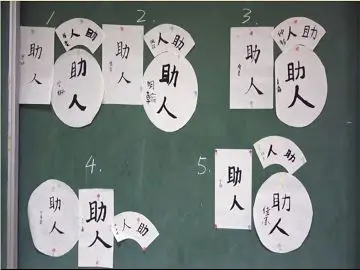 1.
助人
助人
助人
2.
助人
助人
助人
3.
助人
助人
助人
4.
助人
助人
助人
5.
助人
助人
助人